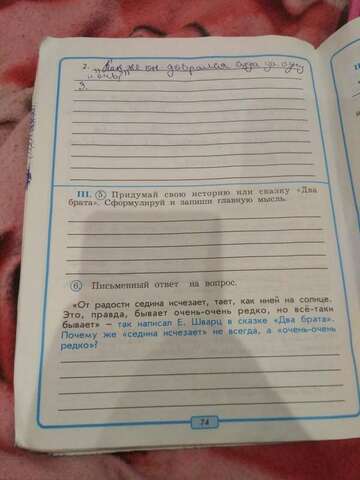 2. „Как же он добрался сюда за одну
ночь"
3.
III. 5 Придумай свою историю или сказку «Два
брата». Сформулируй и запиши главную мысль.
6 Письменный ответ на вопрос.
«От радости седина исчезает, тает, как иней на солнце.
Это, правда, бывает очень-очень редко, но всё-таки
бывает» – так написал Е. Шварц в сказке «Два брата».
Почему же «седина исчезает» не всегда, а «очень-очень
редко»?
74